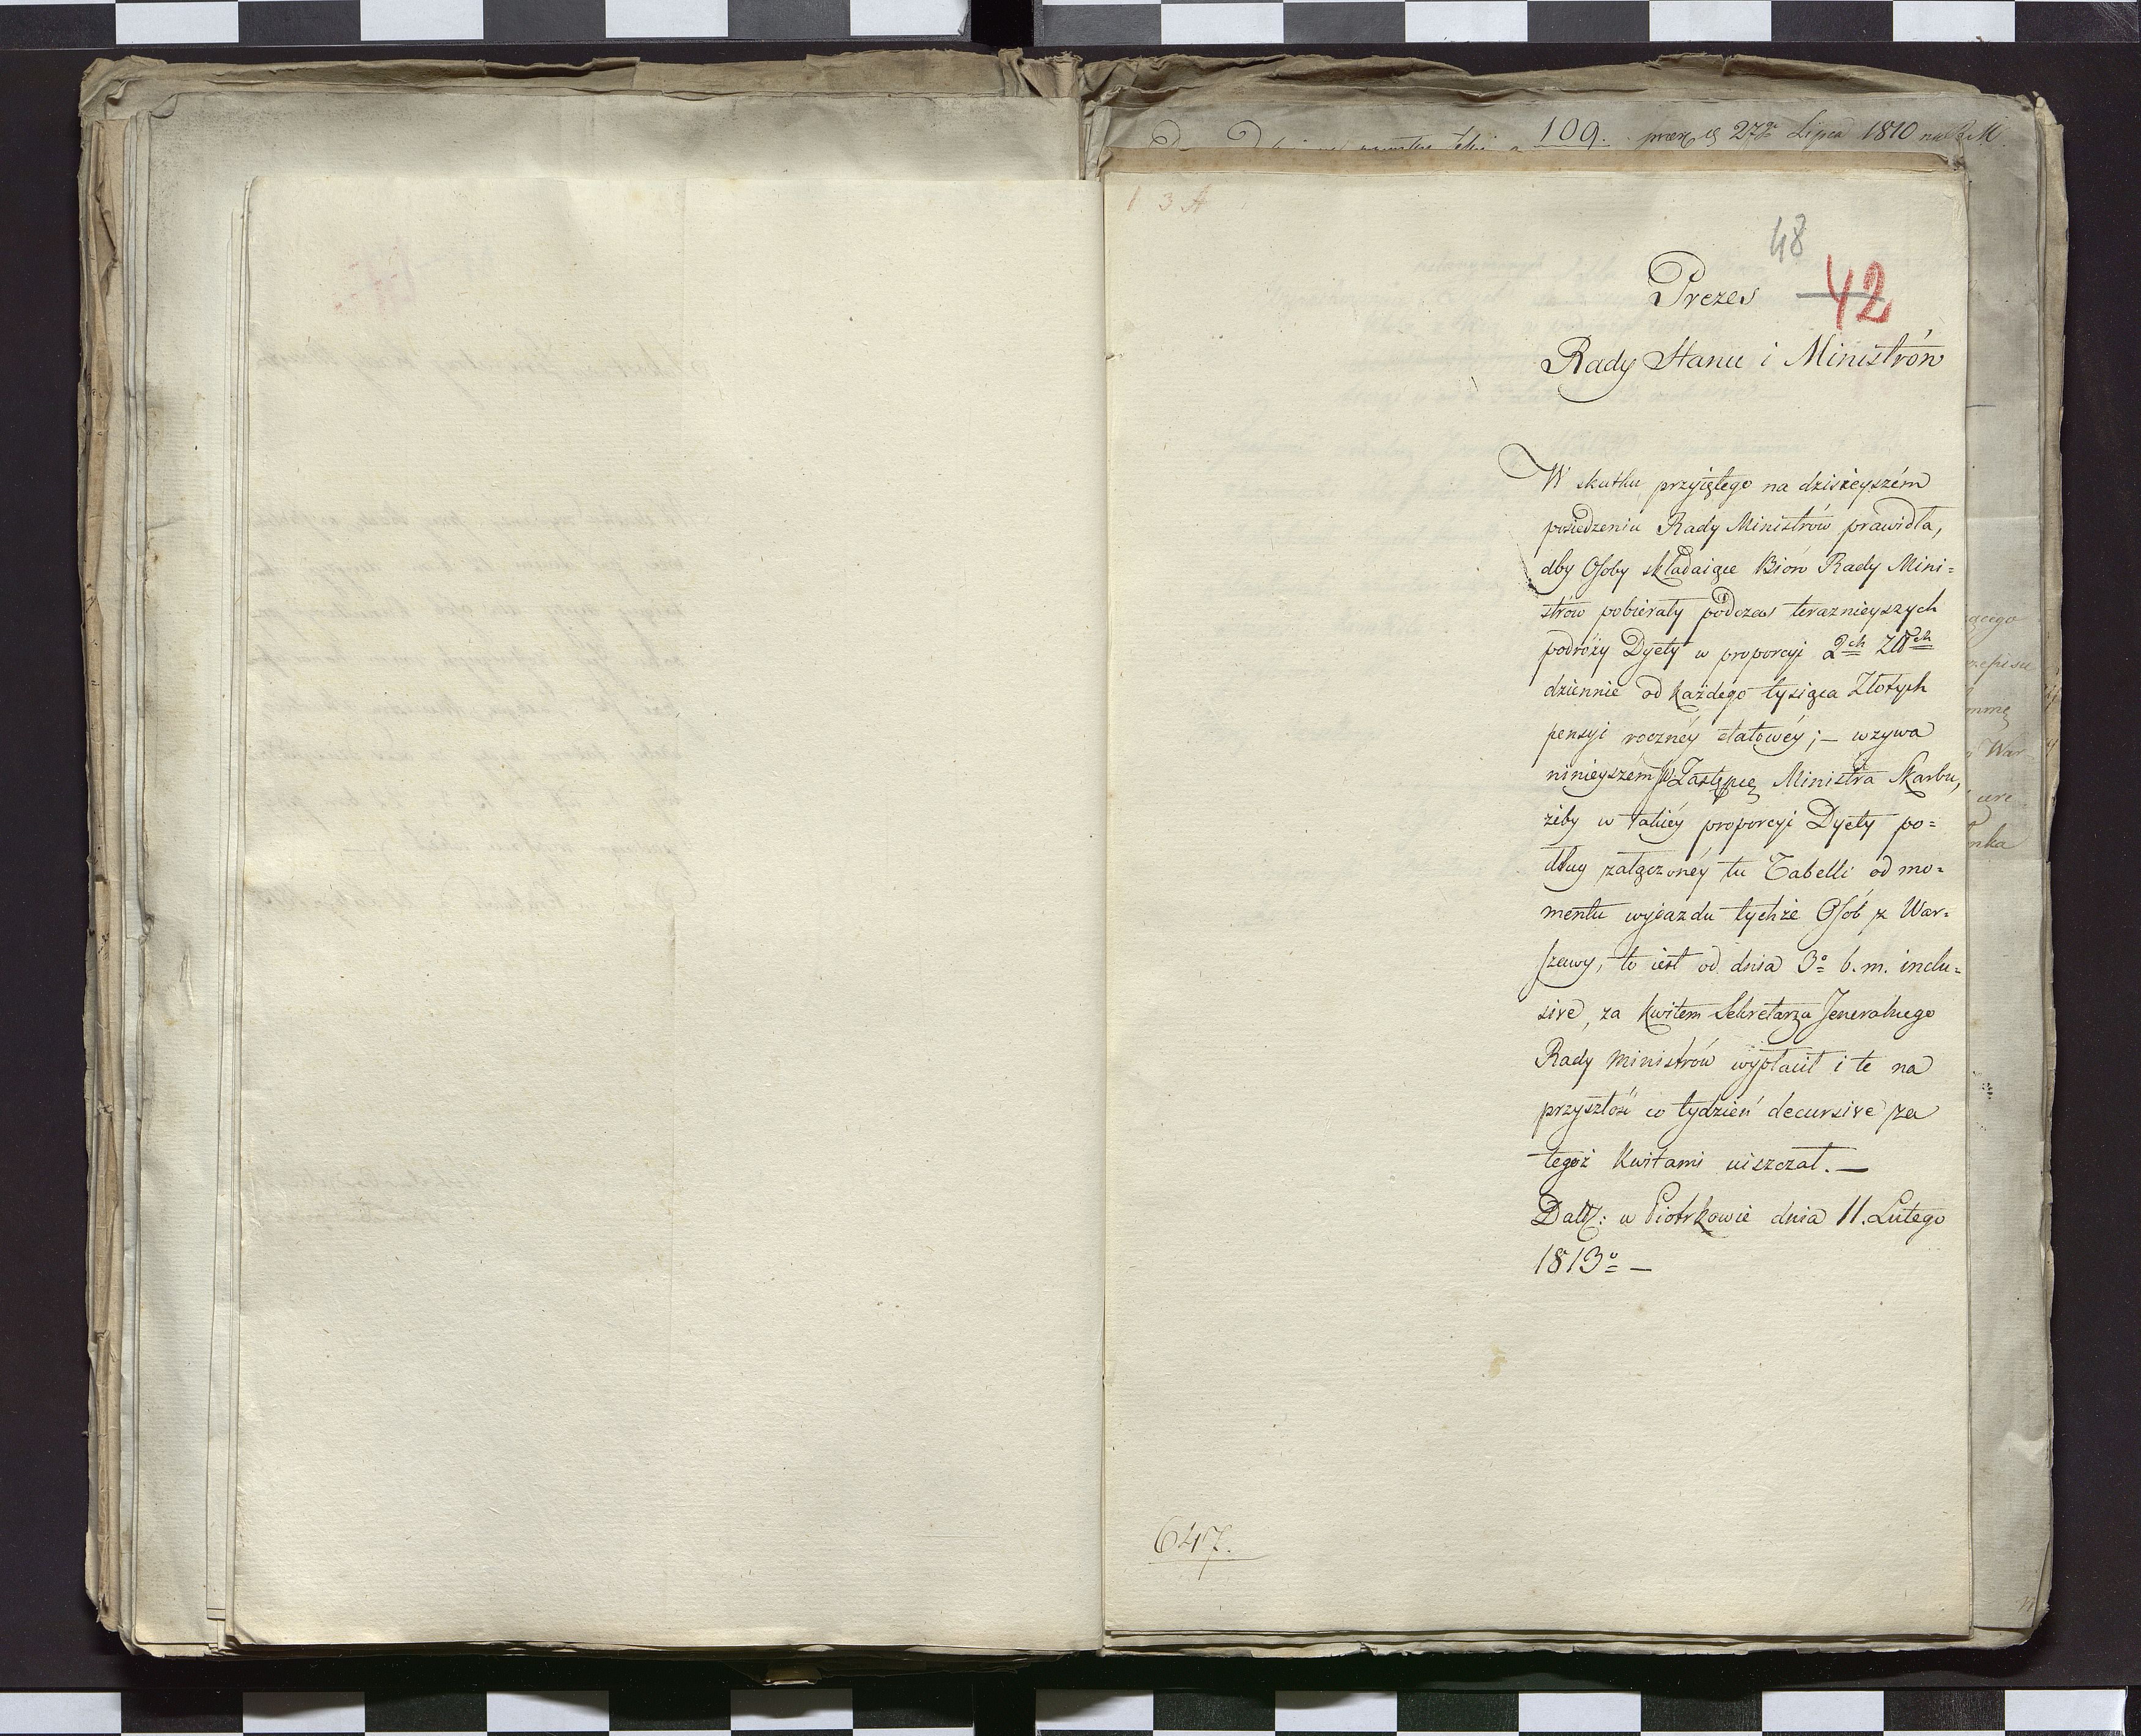 109. 27go Lipca 1810 na R. M.
13 A
48
42
Prezes
Rady Stanu i Ministrów
W skutku przyiętego na dzisieyszém
posiedzeniu Rady Ministrów prawidła,
aby Osoby składaiące Bióro Rady Mini=
strów pobierały podczas teraznieyszych
podróży Dyety w proporcyi 2ch Złłch
dziennie od każdego tysiąca Złotych
pensyi rocznéy etatowéy; – wzywa
ninieyszém JW Zastępcę Ministra Skarbu,
żeby w takiéy proporcyi Dyety po=
dług załączonéy tu Tabelli od mo=
mentu wyjazdu tychże Osób z War=
szawy, to iest od dnia 3o b. m. inclu=
sive, za kwitem Sekretarza Jeneralnego
Rady Ministrów wypłacił i te na
przyszłość co tydzień decursive za
tegoż Kwitami uiszczał. —
Datt: w Piotrkowie dnia 11. Lutego
1813o —
647.
ącego
przepisu
mmę
War
nka